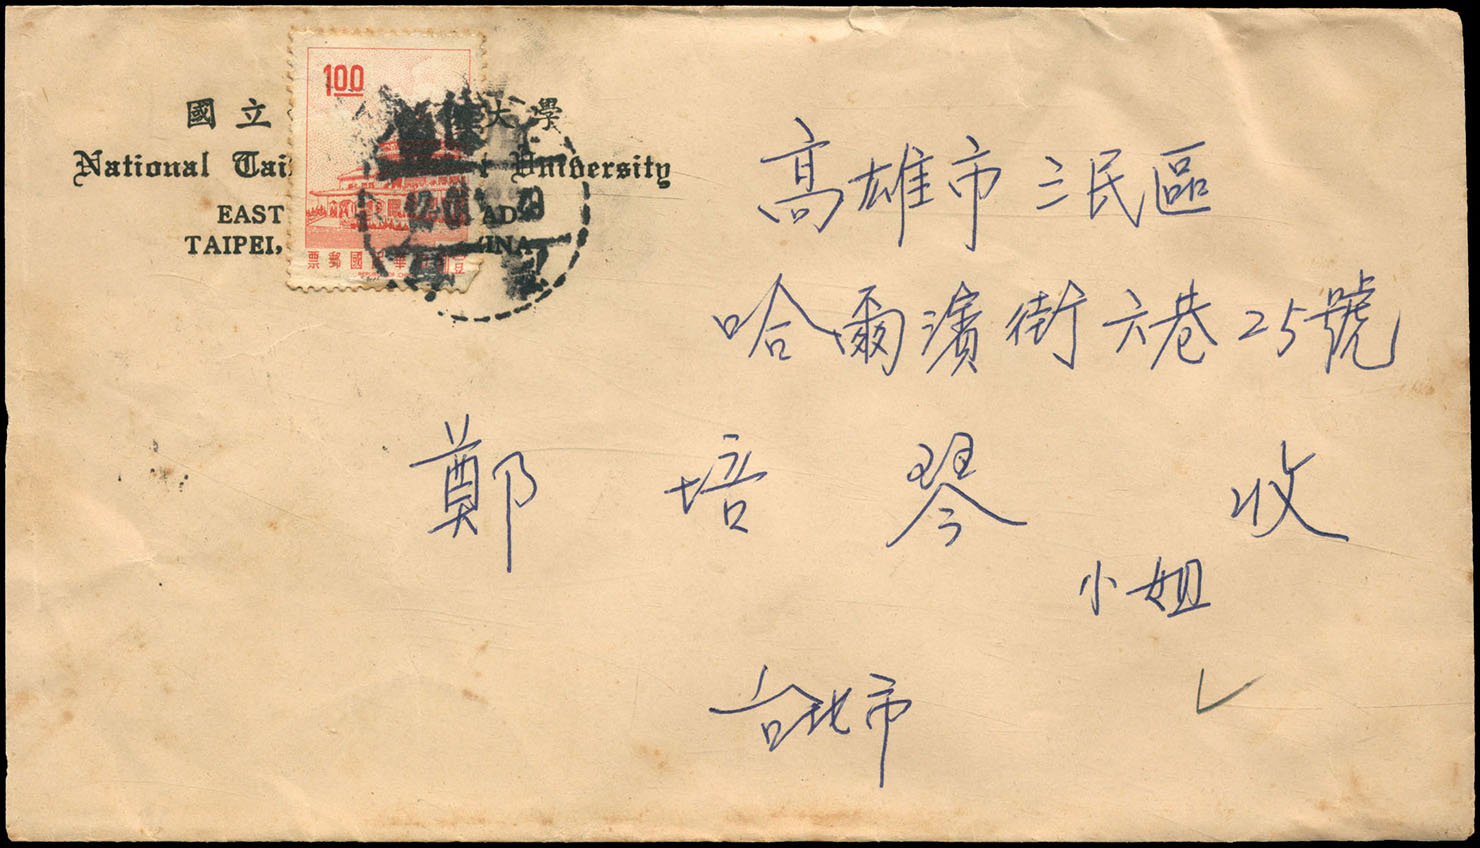 1.00
國立 大學
National Tai University
EAST AD
TAIPEI, INA
票郵國 華 壹
高雄市三民區
哈爾濱街六巷25號
鄭培琴 收
小姐
台北市